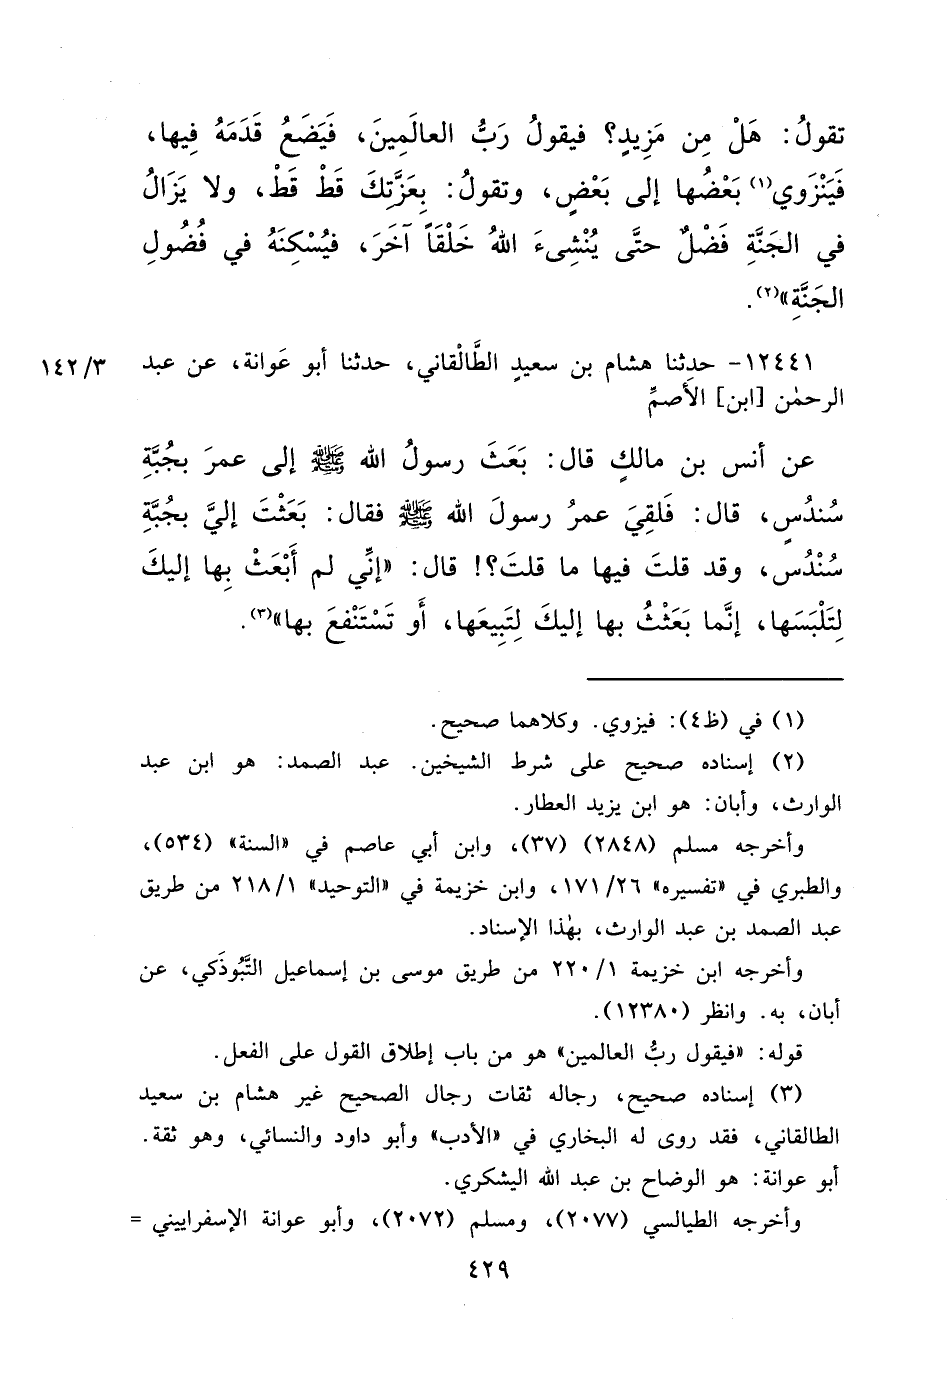 تقولُ: هَلْ مِن مَزِيدٍ؟ فيقولُ رَبُّ العالَمِينَ، فَيَضَعُ قَدَمَهُ فِيها،
فَيَنْزَوي(١) بَعْضُها إلى بَعْضٍ، وتقولُ: بِعَزَّتِكَ قَطْ قَطْ، ولا يَزَالُ
في الجَنَّةِ فَضْلٌ حتَّى يُنْشِىءَ اللهُ خَلْقَاً آخَرَ، فيُسْكِنَهُ في فُضُولِ
الجَنَّةِ»(٢).
١٢٤٤١- حدثنا هشام بن سعيدٍ الطَّالْقاني، حدثنا أبو عَوانة، عن عبد ١٤٢/٣
الرحمٰن [ابن] الأَصمِّ
عن أنس بن مالكٍ قال: بَعَثَ رسولُ الله ﷺ إلى عمرَ بجُبَّةِ
سُندُسٍ، قال: فَلَقِيَ عمرُ رسولَ الله ﷺ فقال: بَعَثْتَ إليَّ بجُبَّةِ
سُنْدُسٍ، وقد قلتَ فيها ما قلتَ؟! قال: «إنِّي لم أَبْعَثْ بِها إليكَ
لِتَلْبَسَها، إنَّما بَعَثْتُ بها إليكَ لِتَبِيعَها، أَو تَسْتَنْفِعَ بها»(٣).
(١) في (ظ٤): فيزوي. وكلاهما صحيح.
(٢) إسناده صحيح على شرط الشيخين. عبد الصمد: هو ابن عبد
الوارث، وأبان: هو ابن يزيد العطار.
وأخرجه مسلم (٢٨٤٨) (٣٧)، وابن أبي عاصم في «السنة» (٥٣٤)،
والطبري في «تفسيره» ١٧١/٢٦، وابن خزيمة في «التوحيد» ٢١٨/١ من طريق
عبد الصمد بن عبد الوارث، بهٰذا الإسناد.
وأخرجه ابن خزيمة ٢٢٠/١ من طريق موسى بن إسماعيل التَّبُوذَكي، عن
أبان، به. وانظر (١٢٣٨٠).
قوله: «فيقول ربُّ العالمين» هو من باب إطلاق القول على الفعل.
(٣) إسناده صحيح، رجاله ثقات رجال الصحيح غير هشام بن سعيد
الطالقاني، فقد روى له البخاري في «الأدب» وأبو داود والنسائي، وهو ثقة.
أبو عوانة: هو الوضاح بن عبد الله اليشكري.
وأخرجه الطيالسي (٢٠٧٧)، ومسلم (٢٠٧٢)، وأبو عوانة الإسفراييني =
٤٢٩